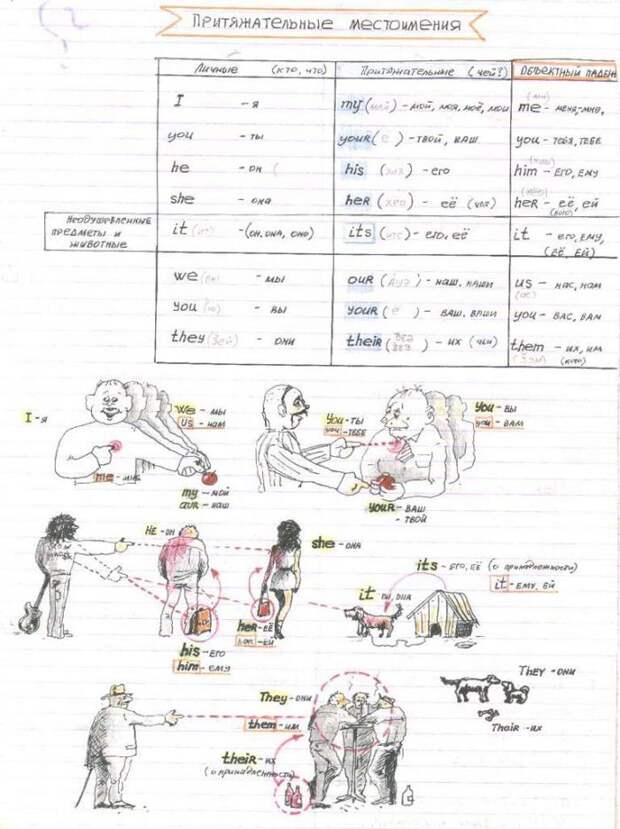 Притяжательные местоимения
Личные (кто, что) Притяжательные (чей?) Объектный падеж
I - я my (май) - мой, моя, моё, мои me - меня, мне,
you - ты your (е) - твой, ваш you - тебя, тебе
he - он his (хиз) - его him - его, ему
she - она her (хёо) - её (чья) her - её, ей
Неодушевленные предметы и животные it (ит) - (он, она, оно) its (итс) - его, её it - его, ему,
(её, ей)
we (ви) - мы our (ауэ) - наш, наши us - нас, нам
you (ю) - вы your (е) - ваш, ваши you - вас, вам
they (зей) - они their (зеэ) - их (чьи) them - их, им
I - я
we - мы
us - нам
me - мне
my - мой
our - наш
you - ты
you - тебе
you - вы
you - вам
your - ваш
- твой
he - он
she - она
its - его, её (о принадлежности)
it - ему, ей
it он, она
her - её
her - ей
his - его
him - ему
They - они
them - им
their - их
(о принадлежности)
They - они
Thair - их